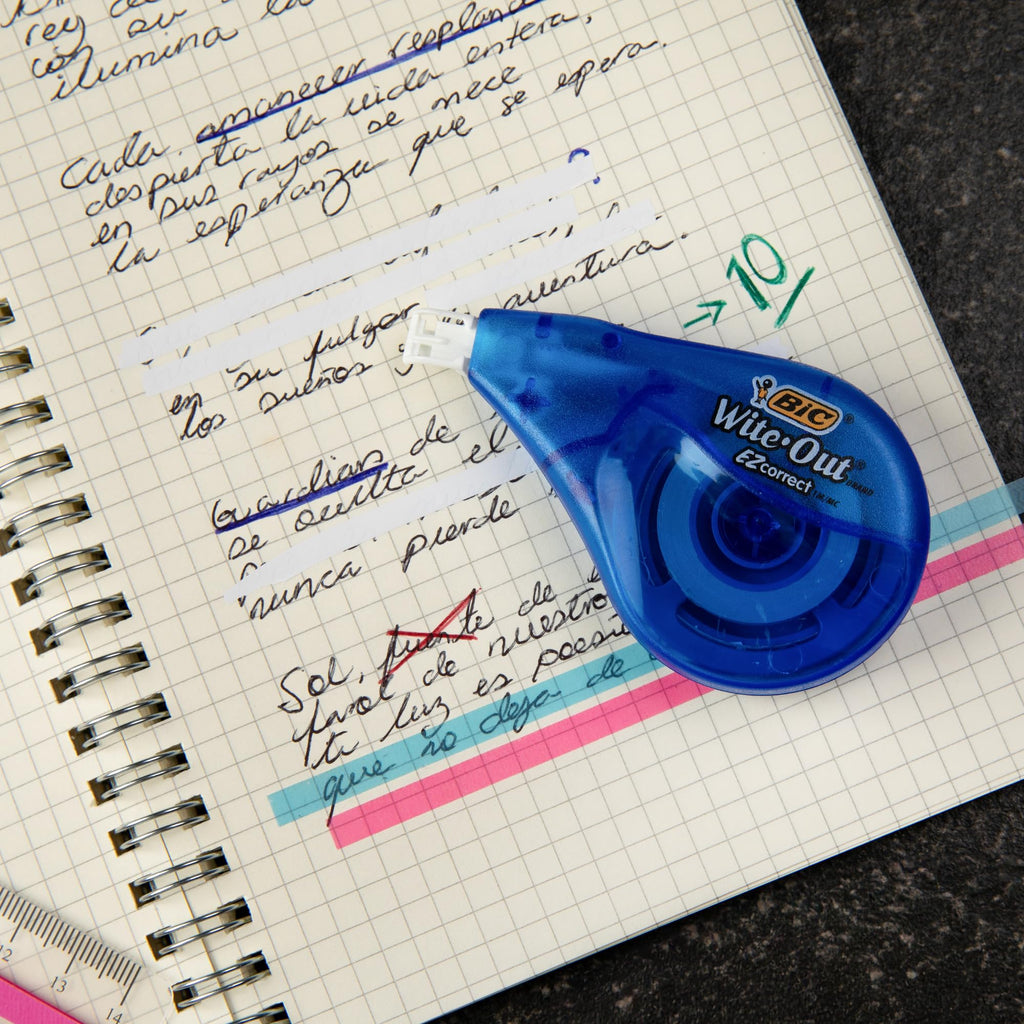 rey de
con su
ilumina la
Cada amanecer
despierta la vida entera,
en sus rayos se mece
la esperanza que se espera.
en su fulgor aventura.
los sueños y
→ 10
Guardian de
se oculta el
nunca pierde
Sol, fuente de
farol de nuestro
tu luz es poesía
que no deja de
BIC
Wite·Out
BRAND
EZcorrect
TM/MC
12
13
14